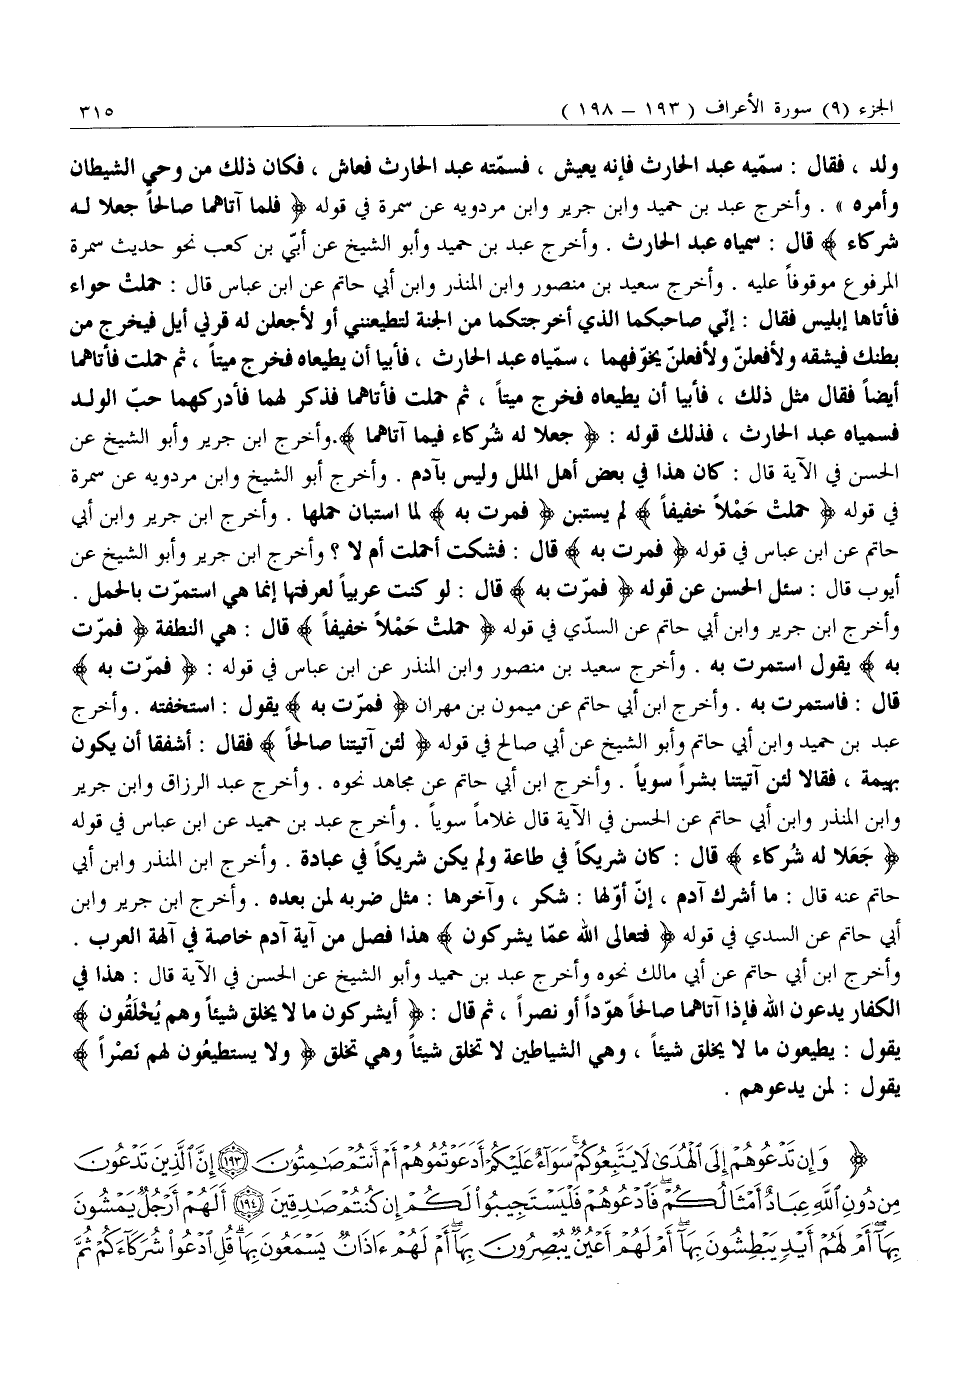 الجزء (٩) سورة الأعراف ( ١٩٣ – ١٩٨ ) ٣١٥
ولد ، فقال : سمّيه عبد الحارث فإنه يعيش ، فسمّته عبد الحارث فعاش ، فكان ذلك من وحي الشيطان
وأمره » . وأخرج عبد بن حميد وابن جرير وابن مردويه عن سمرة في قوله ﴿ فلما آتاهما صالحاً جعلا لـه
شركاء ﴾ قال : سمياه عبد الحارث . وأخرج عبد بن حميد وأبو الشيخ عن أبيّ بن كعب نحو حديث سمرة
المرفوع موقوفاً عليه . وأخرج سعيد بن منصور وابن المنذر وابن أبي حاتم عن ابن عباس قال : حملتْ حواء
فأتاها إبليس فقال : إنّي صاحبكما الذي أخرجتكما من الجنة لتطيعنني أو لأجعلن له قرني أيل فيخرج من
بطنك فيشقه ولأفعلنّ ولأفعلنّ يخوّفهما ، سمّياه عبد الحارث ، فأبيا أن يطيعاه فخرج ميتاً ، ثم حملت فأتاهما
أيضاً فقال مثل ذلك ، فأبيا أن يطيعاه فخرج ميتاً ، ثم حملت فأتاهما فذكر لهما فأدركهما حبّ الولـد
فسمياه عبد الحارث ، فذلك قوله : ﴿ جعلا له شُركاء فيما آتاهما ﴾.وأخرج ابن جرير وأبو الشيخ عن
الحسن في الآية قال : كان هذا في بعض أهل الملل وليس بآدم . وأخرج أبو الشيخ وابن مردويه عن سمرة
في قوله ﴿ حملتْ حَمْلاً خفيفاً ﴾ لم يستبن ﴿ فمرت به ﴾ لما استبان حملها . وأخرج ابن جرير وابن أبي
حاتم عن ابن عباس في قوله ﴿ فمرت به ﴾ قال : فشكت أحملت أم لا ؟ وأخرج ابن جرير وأبو الشيخ عن
أيوب قال : سئل الحسن عن قوله ﴿ فمرّت به ﴾ قال : لو كنت عربياً لعرفتها إنما هي استمرّت بالحمل .
وأخرج ابن جرير وابن أبي حاتم عن السدّي في قوله ﴿ حملتْ حَمْلاً خفيفاً ﴾ قال : هي النطفة ﴿ فمرّت
به ﴾ يقول استمرت به . وأخرج سعيد بن منصور وابن المنذر عن ابن عباس في قوله : ﴿ فمرّت به ﴾
قال : فاستمرت به . وأخرج ابن أبي حاتم عن ميمون بن مهران ﴿ فمرّت به ﴾ يقول : استخفته . وأخرج
عبد بن حميد وابن أبي حاتم وأبو الشيخ عن أبي صالح في قوله ﴿ لئن آتيتنا صالحاً ﴾ فقال : أشفقا أن يكون
بهيمة ، فقالا لئن آتيتنا بشراً سوياً . وأخرج ابن أبي حاتم عن مجاهد نحوه . وأخرج عبد الرزاق وابن جرير
وابن المنذر وابن أبي حاتم عن الحسن في الآية قال غلاماً سوياً . وأخرج عبد بن حميد عن ابن عباس في قوله
﴿ جَعَلا له شُركاء ﴾ قال : كان شريكاً في طاعة ولم يكن شريكاً في عبادة . وأخرج ابن المنذر وابن أبي
حاتم عنه قال : ما أشرك آدم ، إنّ أوّلها : شكر ، وآخرها : مثل ضربه لمن بعده . وأخرج ابن جرير وابن
أبي حاتم عن السدي في قوله ﴿ فتعالى الله عمّا يشركون ﴾ هذا فصل من آية آدم خاصة في آلهة العرب .
وأخرج ابن أبي حاتم عن أبي مالك نحوه وأخرج عبد بن حميد وأبو الشيخ عن الحسن في الآية قال : هذا في
الكفار يدعون الله فإذا آتاهما صالحاً هوّداً أو نصراً ، ثم قال : ﴿ أيشركون ما لا يخلق شيئاً وهم يُخْلَقُون ﴾
يقول : يطيعون ما لا يخلق شيئاً ، وهي الشياطين لا تخلق شيئاً وهي تخلق ﴿ ولا يستطيعُون لهم نَصْراً ﴾
يقول : لمن يدعوهم .
﴿ وَإِن تَدْعُوهُمْ إِلَى ٱلْهُدَىٰ لَا يَتَّبِعُوكُمْ ۚ سَوَآءٌ عَلَيْكُمْ أَدَعَوْتُمُوهُمْ أَمْ أَنتُمْ صَٰمِتُونَ ١٩٣ إِنَّ ٱلَّذِينَ تَدْعُونَ
مِن دُونِ ٱللَّهِ عِبَادٌ أَمْثَالُكُمْ ۖ فَٱدْعُوهُمْ فَلْيَسْتَجِيبُوا۟ لَكُمْ إِن كُنتُمْ صَٰدِقِينَ ١٩٤ أَلَهُمْ أَرْجُلٌ يَمْشُونَ
بِهَآ ۖ أَمْ لَهُمْ أَيْدٍ يَبْطِشُونَ بِهَآ ۖ أَمْ لَهُمْ أَعْيُنٌ يُبْصِرُونَ بِهَآ ۖ أَمْ لَهُمْ ءَاذَانٌ يَسْمَعُونَ بِهَا ۗ قُلِ ٱدْعُوا۟ شُرَكَآءَكُمْ ثُمَّ